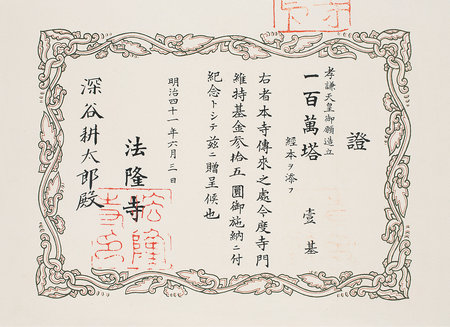 證
孝謙天皇御願造立
一百萬塔 壹基
經本ヲ添フ
右者本寺傳來之處今度寺門
維持基金參拾五圓御施納ニ付
紀念トシテ茲ニ贈呈候也
明治四十一年六月三日
法隆寺
法隆
寺印
深谷耕太郎殿